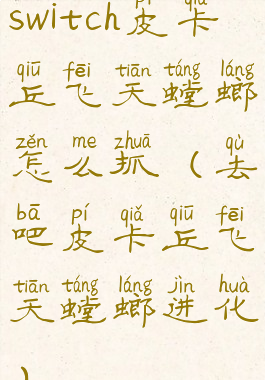 pí qiǎ
switch皮卡
qiū fēi tiān táng láng
丘飞天螳螂
zěn me zhuā qù
怎么抓(去
bā pí qiǎ qiū fēi
吧皮卡丘飞
tiān táng láng jìn huà
天螳螂进化
)